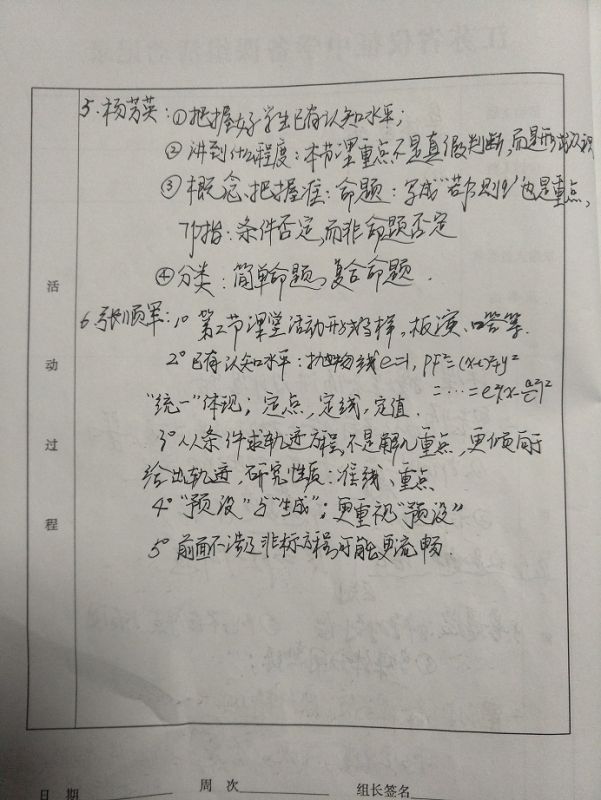 5. 杨芳英：①把握好学生已有认知水平；
②讲到什么程度：本节课重点不是真假判断，而是形式及积
③概念、把握准：命题：写成“若P则q”也是重点，
指：条件否定，而非命题否定
④分类：简单命题，复合命题．
6. 张顺军：1° 第二节课堂活动形式多样。板演、口答等．
2° 已有认知水平：抛物线e=1，PF²=(x-c)²+y²
=…=e²(x-a²/c)²
“统一”体现；定点，定线，定值．
3° 从条件求轨迹方程，不是解几重点，更倾向于
给出轨迹，研究性质：准线、重点
4° “预设”与“生成”；更重视“预设”
5° 前面不涉及非标方程，可能更流畅．
活
动
过
程
日 期
周 次
组长签名